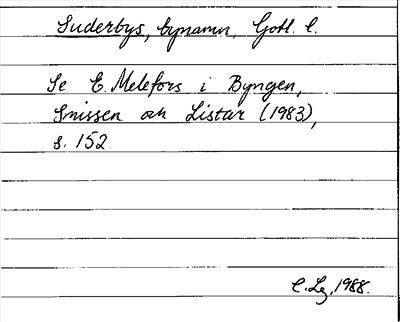 Suderbys, bynamn, Gotl. l.
Se E. Melefors i Byngen,
Smissen och Listar (1983),
s. 152
C. Lg, 1988.